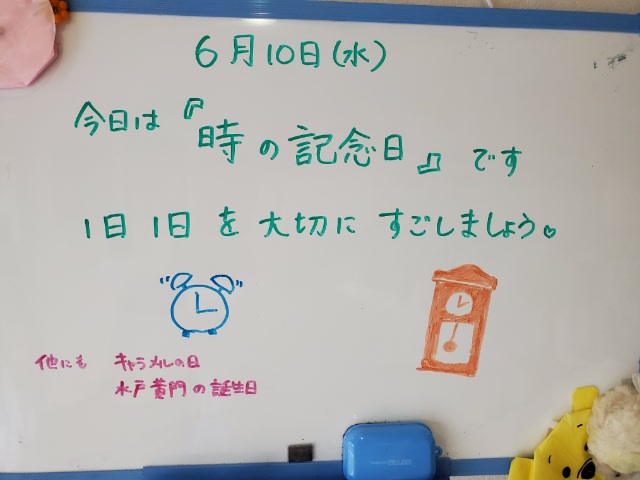 6月10日(水)
今日は『時の記念日』です
1日1日を大切にすごしましょう。
他にも キャラメルの日
水戸黄門の誕生日